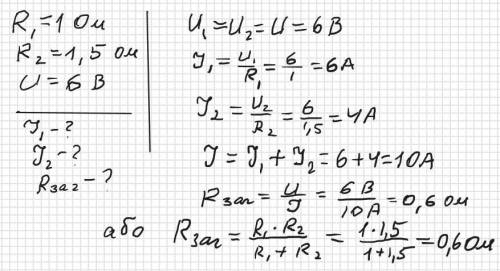 R₁=1 Ом
R₂=1,5 ом
U=6 В
I₁-?
I₂-?
Rзаг-?
U₁=U₂=U=6 В
I₁=U₁/R₁=6/1=6А
I₂=U₂/R₂=6/1,5=4А
I=I₁+I₂=6+4=10А
Rзаг=U/I=6 В/10 А=0,6 ом
або Rзаг=R₁·R₂/R₁+R₂=1·1,5/1+1,5=0,6 ом